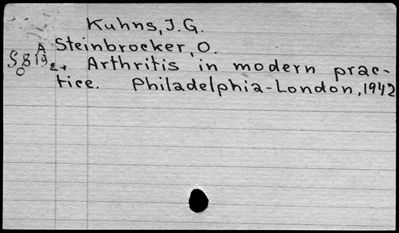 Kuhns, J.G.
A Steinbrocker, O.
Arthritis in modern prac-
tice. Philadelphia-London, 1942